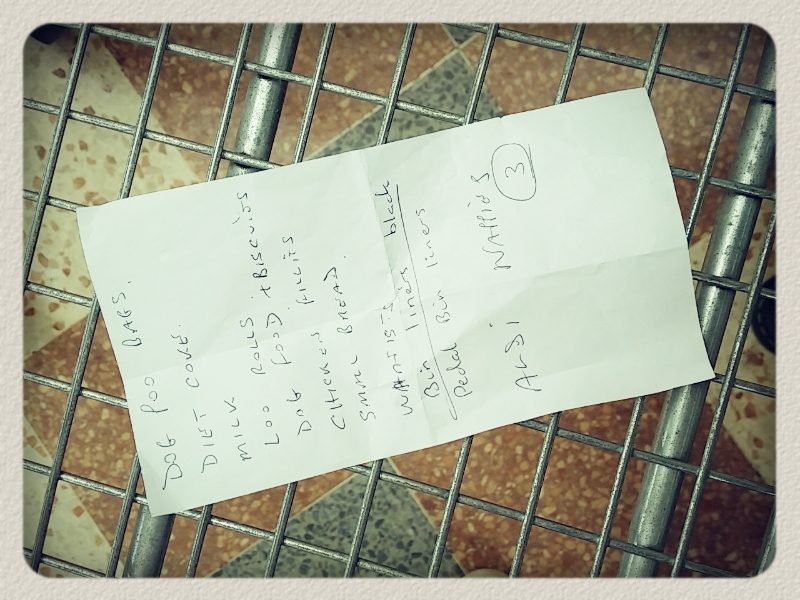 DOG POO BAGS.
DIET COKE.
MILK
LOO ROLLS.
DOG FOOD + BISCUITS
CHICKEN FILLITS
SMALL BREAD.
Bin liners black
Pedal Bin liners
ALDI NAPPIES 3